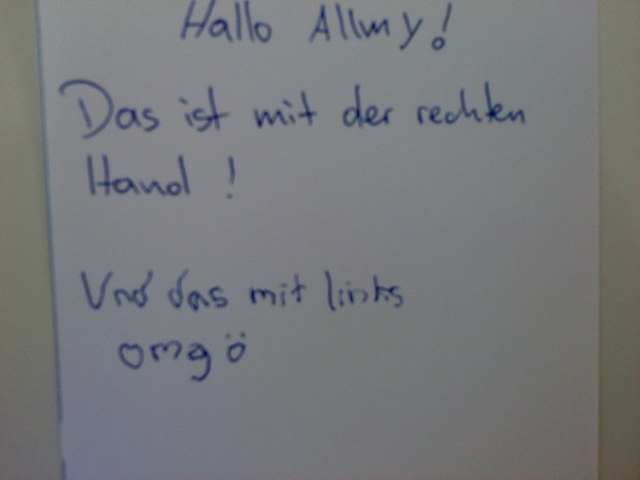 Hallo Allmy!
Das ist mit der rechten
Hand !
Und das mit links
omg ö